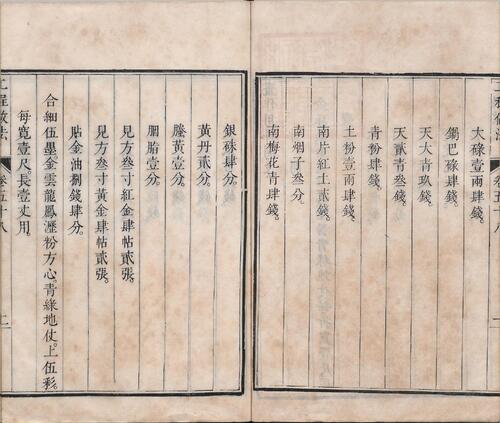 工程做法
卷五十八
大碌壹兩肆錢。
鍋巴碌肆錢。
天大青玖錢。
天貳青叁錢。
青粉肆錢。
土粉壹兩肆錢。
南片紅土貳錢。
南烟子叁分。
南梅花青肆錢。
銀硃肆分。
黃丹貳分。
籐黃壹分。
胭脂壹分。
見方叁寸紅金肆帖貳張。
見方叁寸黃金肆帖貳張。
貼金油捌錢肆分。
合細伍墨。金雲龍鳳瀝粉方心。青綠地仗。上伍彩。
每寬壹尺。長壹丈用。
工程做法
卷五十八
二